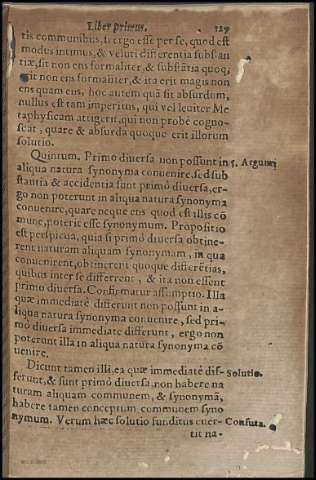 Liber primus. 129
tis communibus, ti ergo esse per se, quod est
modus intimus, & veluti differentia substan
tiæ, sit non ens formaliter, & substãtia quoq;
sit non ens formaliter, & ita erit magis non
ens quam ens, hoc autem quã sit absurdum,
nullus est tam imperitus, qui vel leuiter Me
taphysicam attigerit, qui non probè cognos
cat, quare & absurda quoque erit illorum
solutio.
Quintum. Primo diuersa non possunt in 5. Argumẽ
aliqua natura synonyma conuenire, sed sub
stantia & accidentia sunt primò diuersa, er-
go non poterunt in aliqua natura synonyma
conuenire, quare neque ens quod est illis cõ
mune, poterit esse synonymum. Propositio
est perspicua, quia si primò diuersa obtine-
rent naturam aliquam synonymam, in qua
conuenirent, obtinerent quoque differẽtias,
quibus inter se differrent, & ita non essent
primo diuersa. Confirmatur assumptio. Illa
quæ immediatè differunt non possunt in a-
liqua natura synonyma conuenire, sed pri-
mò diuersa immediate differunt, ergo non
poterunt illa in aliqua natura synonyma cõ
uenire.
Dicunt tamen illi, ea quæ immediatè dif- Solutio.
ferunt, & sunt primò diuersa, non habere na
turam aliquam communem, & synonymã,
habere tamen conceptum communem syno
nymum. Verum hæc solutio funditus euer- Confuta.
tit na-